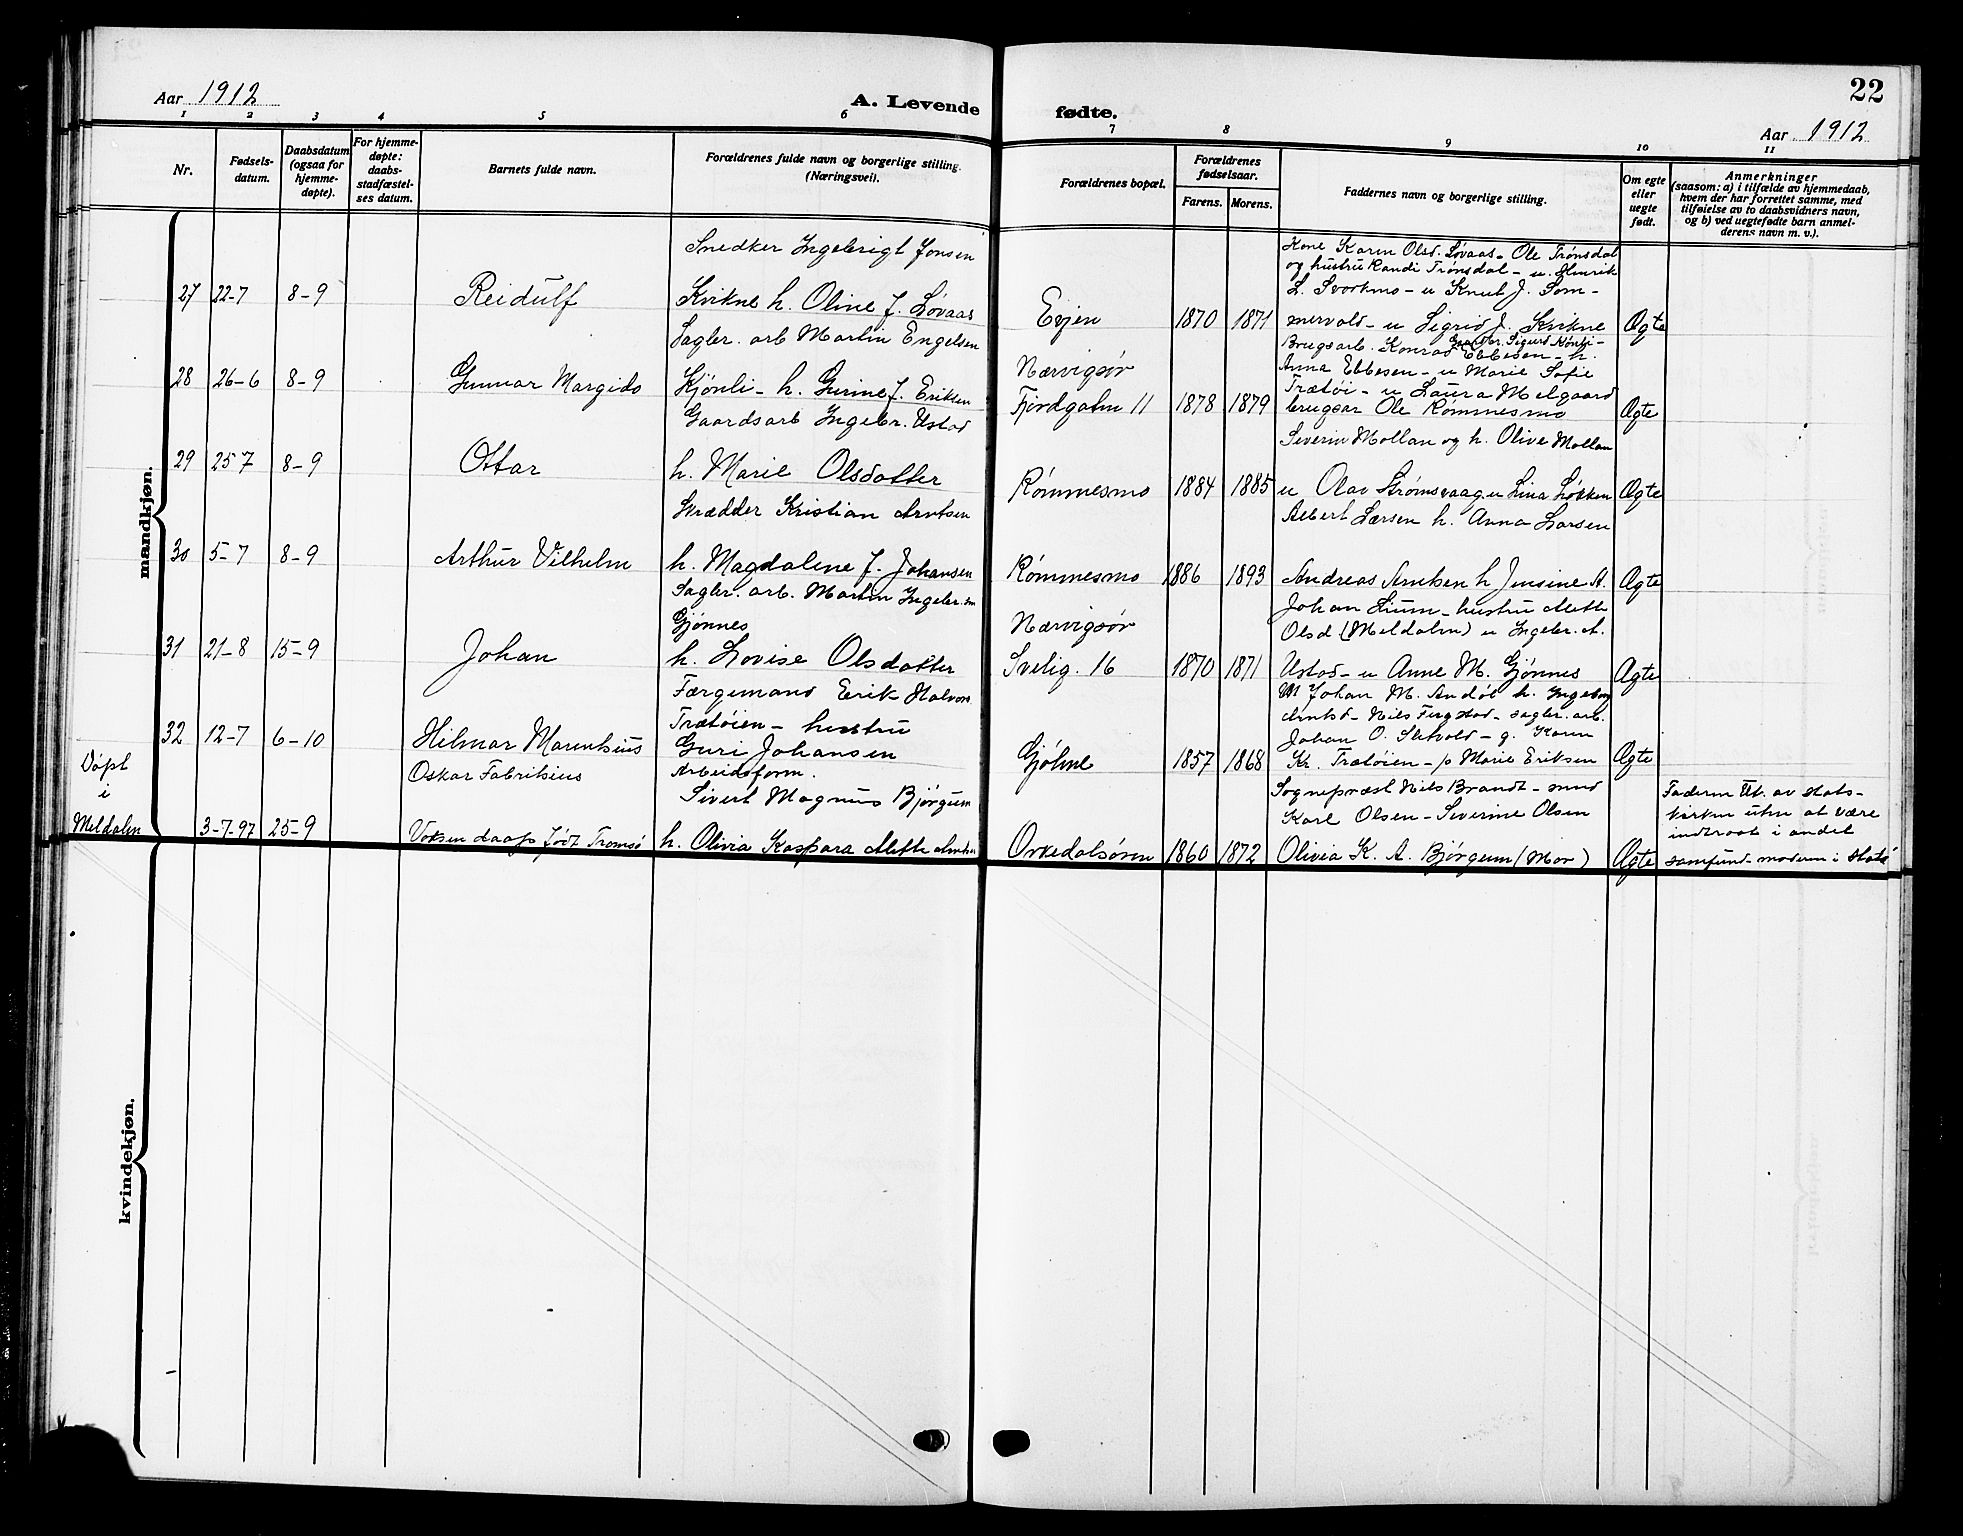 Aar 1912
A. Levende
1 2 3 4 5 6
Nr.
Fødsels-
datum.
Daabsdatum
(ogsaa for
hjemme-
døpte).
For hjemme-
døpte:
daabs-
stadfæstel-
ses datum.
Barnets fulde navn.
Forældrenes fulde navn og borgerlige stilling.
(Næringsvei).
mandkjøn.
Snedker Ingebrigt Jonsen
27 22-7 8-9 Reidulf Kvikne h. Oline f. Løvaas
Sagbr. arb Martin Engelsen
28 26-6 8-9 Gunnar Margido Kjønli - h. Gurine f. Eriksen
Gaardsarb Ingebr. Ustad
29 25 7 8-9 Ottar h. Marie Olsdatter
Skrædder Kristian Arntsen
30 5-7 8-9 Arthur Vilhelm h. Magdalene f. Johansen
Sagbr. arb. Martin Ingebr.sn
Gjønnes
31 21-8 15-9 Johan h. Lovise Olsdatter
Færgemand Erik Halvors
Trætøien - hustru
32 12-7 6-10 Hilmar Marentsius Guri Johansen
Døpt
i
Meldalen
Oskar Fabritsius Arbeidsform.
Sivert Magnus Bjørgum
3-7-97 25-9 Voksen daap født Tromsø h. Olivia Kaspara Mette Arntsen
kvindekjøn.
fødte.
22
Aar 1912
7 8 9 10 11
Forældrenes bopæl.
Forældrenes
fødselsaar.
Farens. Morens.
Faddernes navn og borgerlige stilling.
Om egte
eller
uegte
født.
Anmerkninger
(saasom: a) i tilfælde av hjemmedaab,
hvem der har forrettet samme, med
tilføielse av to daabsvidners navn,
og b) ved uegtefødte barn anmel-
derens navn m. v.).
Kone Karen Olsd. Løvaas - Ole Trønsdal
og hustru Randi Trønsdal - u. Henrik
L. Svorkmo - u Knut J. Som-
Evjen 1870 1871 mervold - u Sigrid J. Kvikne Ægte
Brugsarb. Konrad Ebbesen - h.
Gaardbr. Sigurd Kønli -
Nærvigsør Anna Ebbesen - u Marie Sofie
Trætøi - u Laura Melgaard
Fjordgaten 11 1878 1879 brugsar Ole Rømmesmo Ægte
Severin Mollan og h. Olive Mollan
Rømmesmo 1884 1885 u Olav Strømsvaag u Lina Løkken Ægte
Albert Larsen h. Anna Larsen
Rømmesmo 1886 1893 Andreas Arntsen h Jensine A. Ægte
Johan Lium - hustru Mette
Nærvigsør Olsd (Meldalen) u Ingebr. A.
Svelig. 16 1870 1871 Ustad - u Anne M. Gjønnes Ægte
Johan M. Andøl h. Ingebng
Arntsd - Nils Fergstad - sagbr. arb.
Johan O. Sletvold - g. Karen
Gjølme 1857 1868 Kr. Trætøien - p Marie Eriksen Ægte
Sogneprest Nils Brandt - smed
Karl Olsen - Severine Olsen
Orkedalsøren 1860 1872 Olivia K. A. Bjørgum (Mor) Ægte
Faderen Ut. av stats-
kirken uten at være
indtraat i andet
samfund - moderen i stats